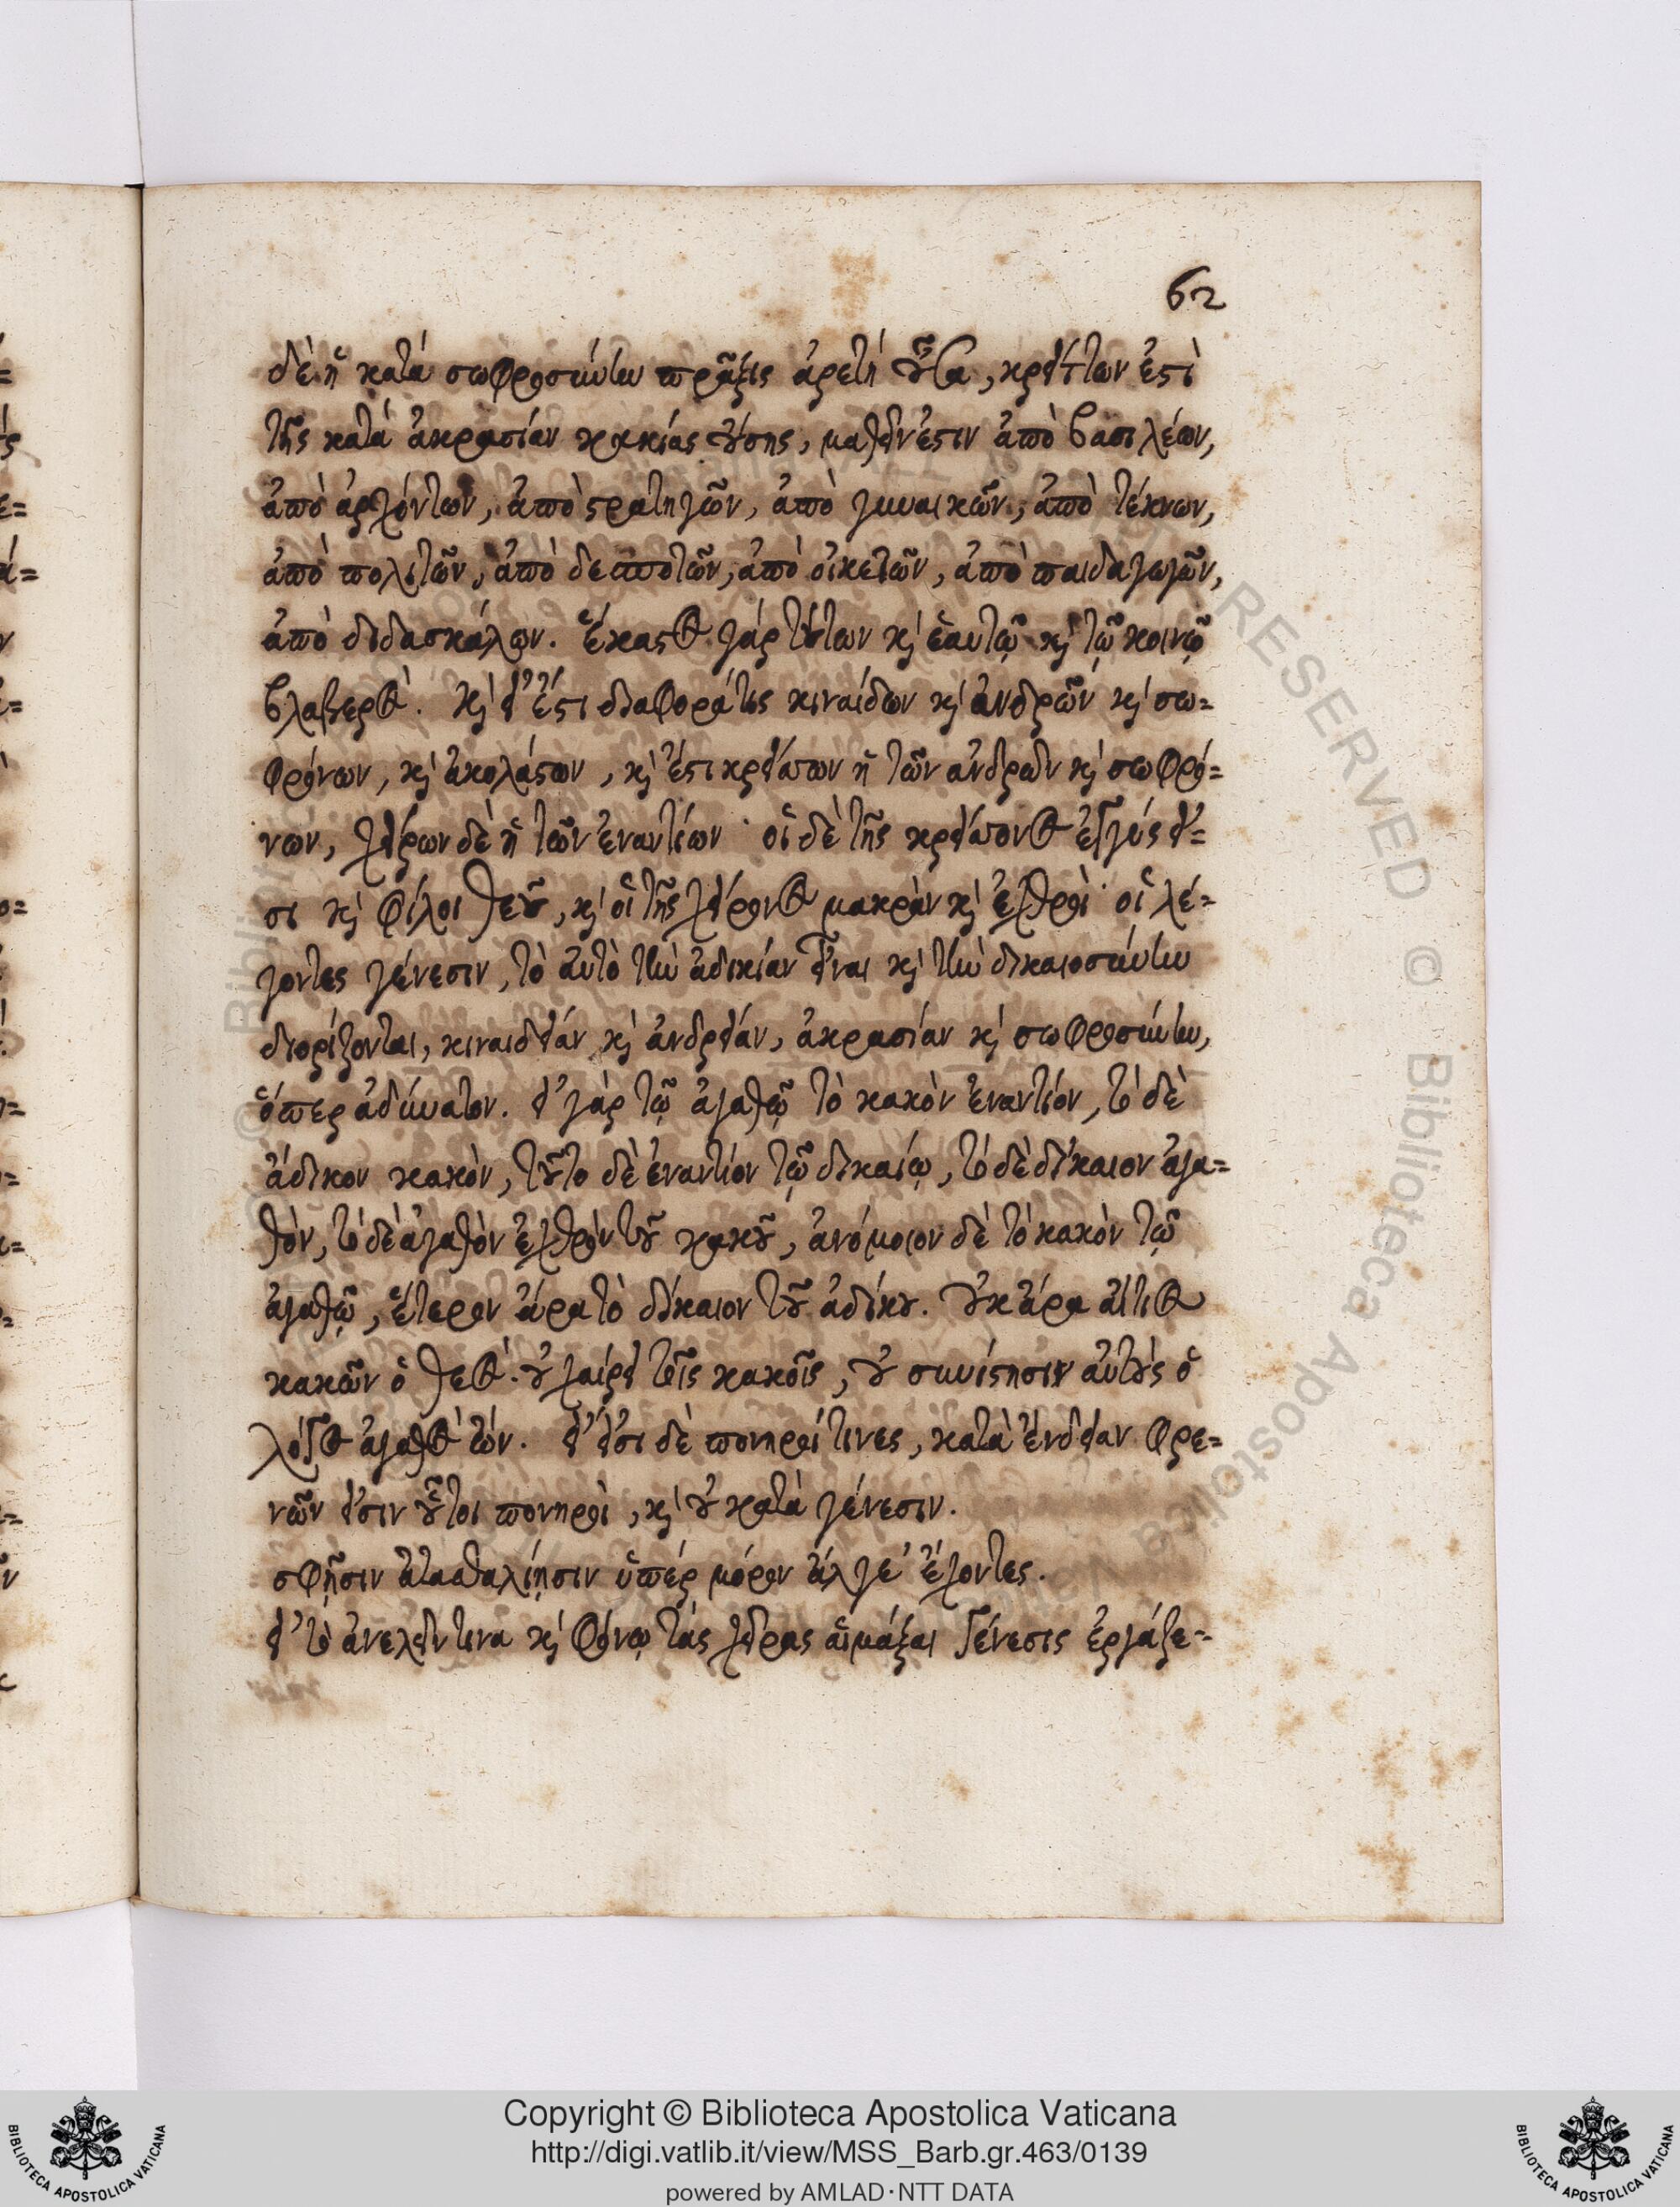 62
δὲ ἡ κατά σωφροσύνην πρᾶξις ἀρετή οὖσα, κρείττων ἐστὶ
τῆς κατά ἀκρασίαν κακίας οὔσης, μαθεῖν ἐστιν ἀπὸ βασιλέων,
ἀπὸ ἀρχόντων, ἀπὸ στρατηγῶν, ἀπὸ γυναικῶν, ἀπὸ τέκνων,
ἀπὸ πολιτῶν, ἀπὸ δεσποτῶν, ἀπὸ οἰκετῶν, ἀπὸ παιδαγωγῶν,
ἀπὸ διδασκάλων. ἕκαστος γάρ τούτων καὶ ἑαυτῷ καὶ τῷ κοινῷ
βλαβερός. καὶ εἰ ἔστι διαφορά τις κιναίδων καὶ ἀνδρῶν καὶ σω=
φρόνων, καὶ ἀκολάστων, καὶ ἔστι κρείττων ἡ τῶν ἀνδρῶν καὶ σωφρό=
νων, χείρων δὲ ἡ τῶν ἐναντίων· οἱ δὲ τῆς κρείττονος ἐγγύς εἰ=
σι καὶ φίλοι θεοῦ, καὶ οἱ τῆς χείρονος μακρὰν καὶ ἐχθροὶ· οἱ λέ=
γοντες γένεσιν, τὸ αὐτὸ τὴν ἀδικίαν εἶναι καὶ τὴν δικαιοσύνην
διορίζονται, κιναιδείαν καὶ ἀνδρείαν, ἀκρασίαν καὶ σωφροσύνην,
ὅπερ ἀδύνατον. εἰ γάρ τῷ ἀγαθῷ τὸ κακὸν ἐναντίον, τὸ δὲ
ἄδικον κακὸν, τοῦτο δὲ ἐναντίον τῷ δικαίῳ, τὸ δὲ δίκαιον ἀγα=
θὸν, τὸ δὲ ἀγαθὸν ἐχθρὸν τοῦ κακοῦ, ἀνόμοιον δὲ τὸ κακὸν τῷ
ἀγαθῷ, ἕτερον ἄρα τὸ δίκαιον τοῦ ἀδίκου. Οὐκ ἄρα αἴτιος
κακῶν ὁ θεός· οὐ χαίρει τοῖς κακοῖς, οὐ συνίστησιν αὐτούς ὁ
λόγος ἀγαθός ὤν. εἰ εἰσι δὲ πονηροί τινες, κατὰ ἔνδειαν φρε=
νῶν εἰσιν οὗτοι πονηροὶ, καὶ οὐ κατὰ γένεσιν.
σφῇσιν ἀτασθαλίῃσιν ὑπέρ μόρον ἄλγε' ἔχοντες.
εἰ τὸ ἀνελεῖν τινα καὶ φόνῳ τάς χεῖρας αἱμάξαι Γένεσις ἐργάζε=
Copyright © Biblioteca Apostolica Vaticana
http://digi.vatlib.it/view/MSS_Barb.gr.463/0139
powered by AMLAD·NTT DATA